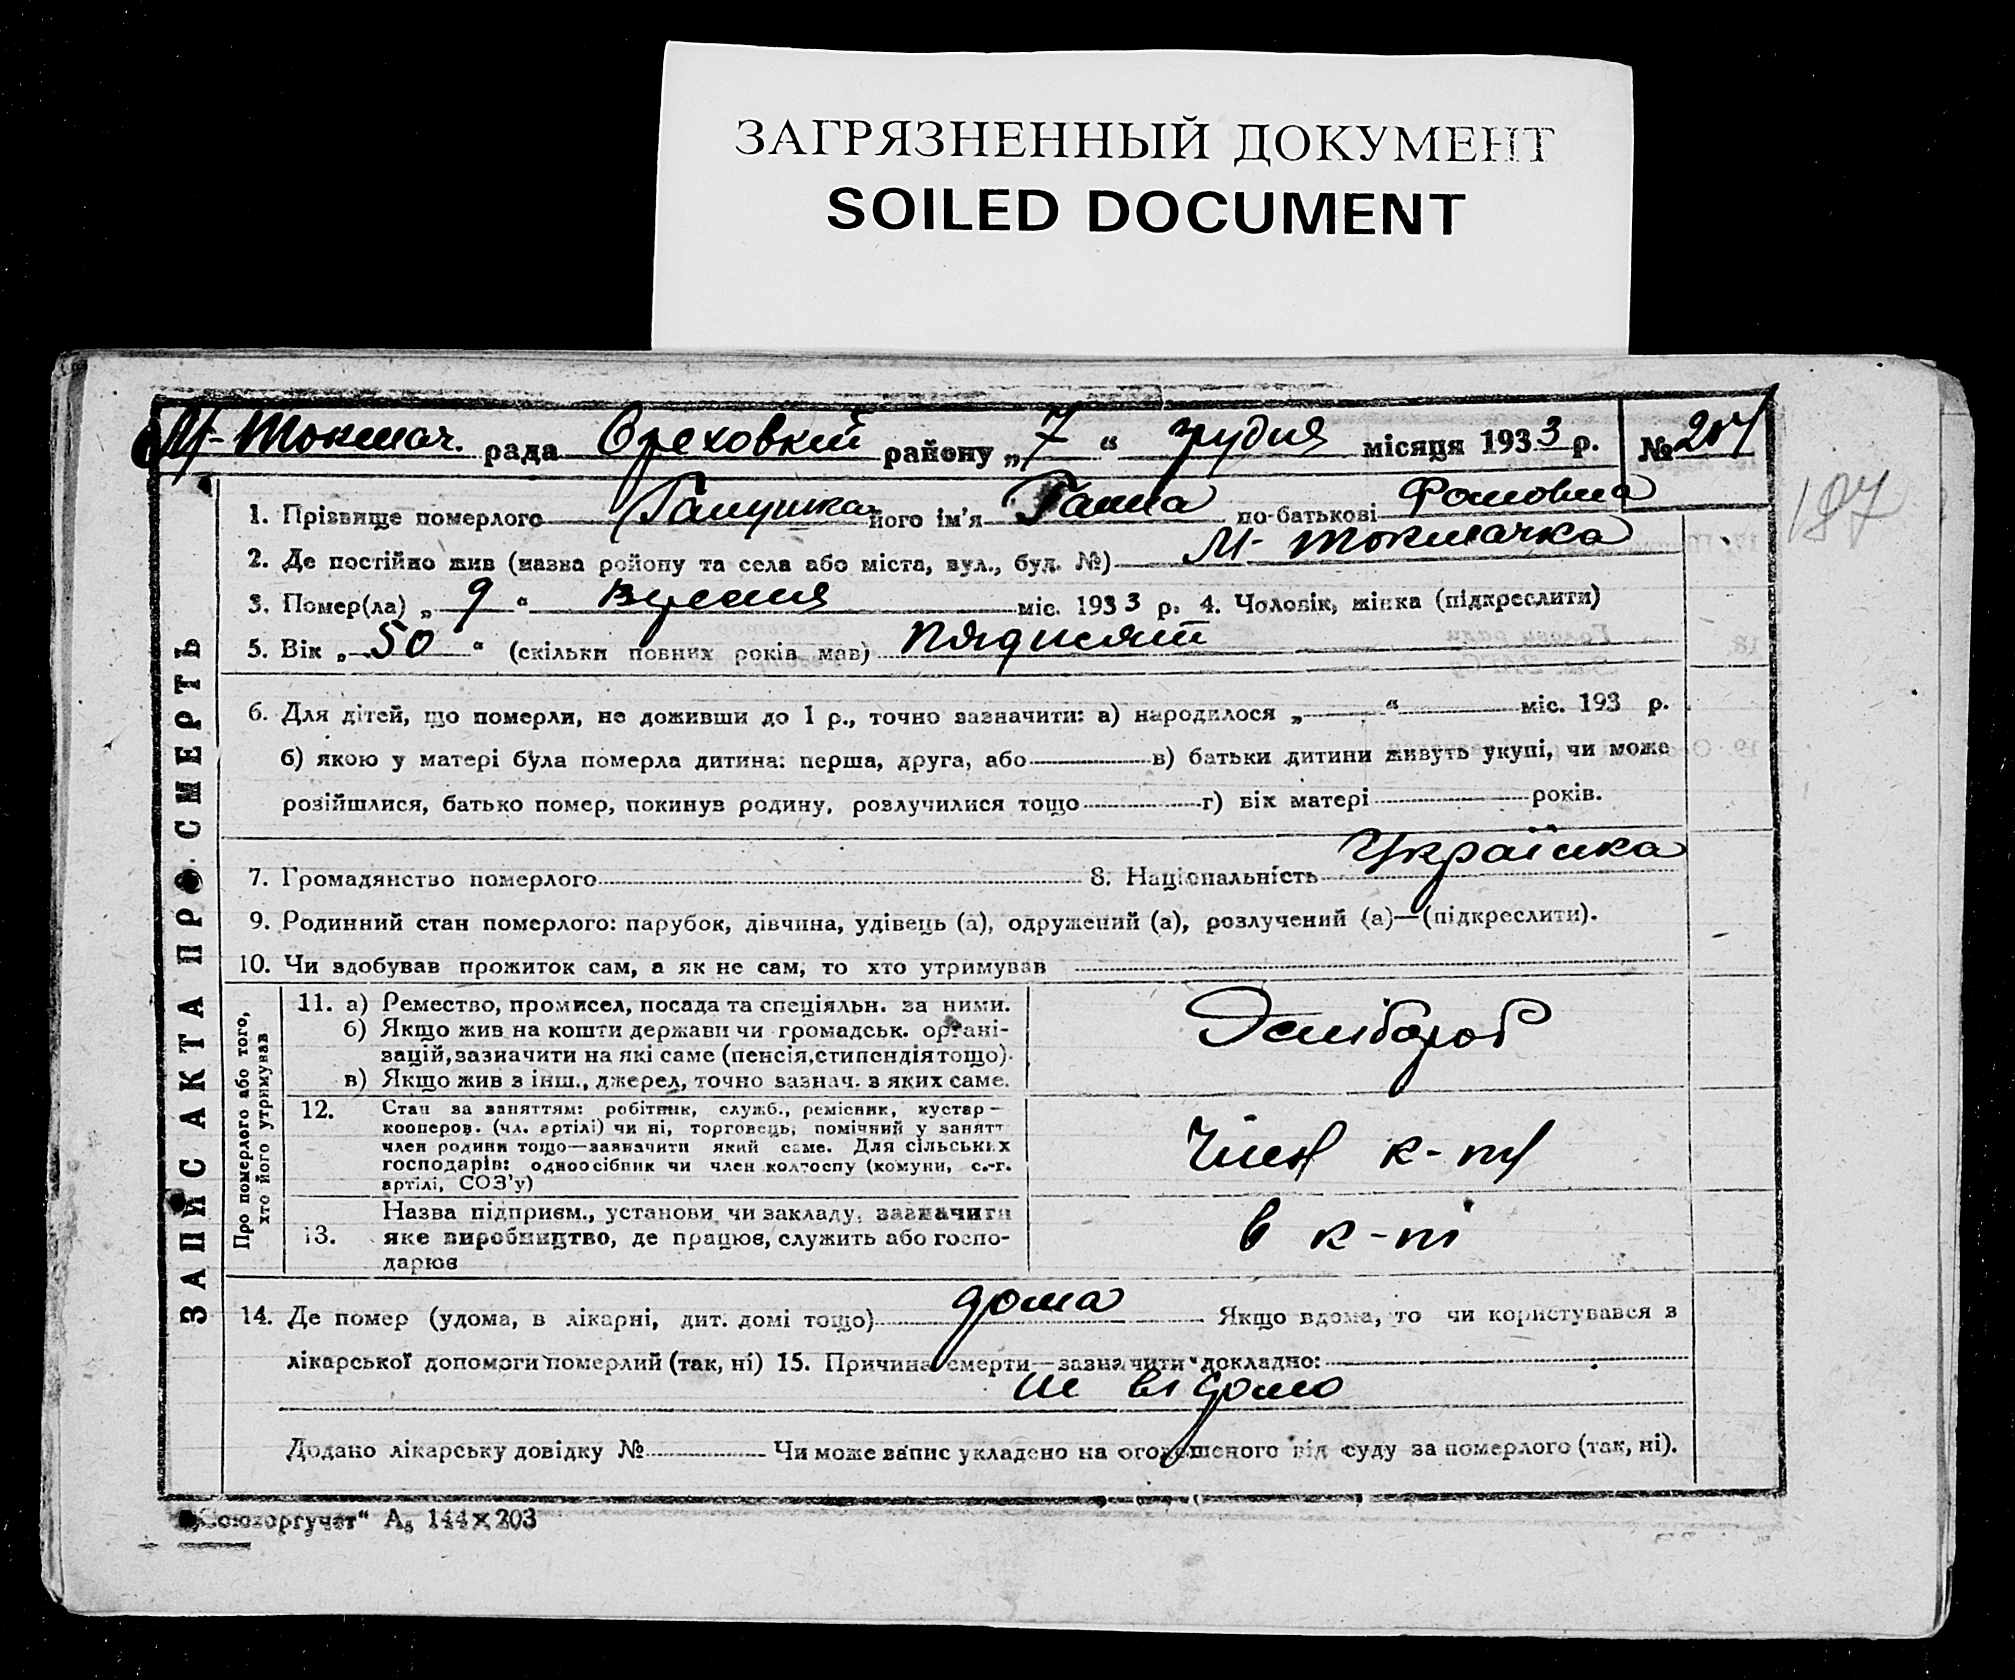 ЗАГРЯЗНЕННЫЙ ДОКУМЕНТ
SOILED DOCUMENT
М-Токмач. рада Ореховкий району „7“ грудня місяця 1933 р. № 207
187
ЗАПИС АКТА ПРО СМЕРТЬ
1. Прізвище померлого Галушка його ім'я Ганна по-батькові Фомовна
2. Де постійно жив (назва району та села або міста, вул., буд. №) М-Токмачка
3. Помер(ла) „9“ міс. 1933 р. 4. Чоловік, жінка (підкреслити)
5. Вік „50“ (скільки повних років мав) пядисят
6. Для дітей, що померли, не доживши до 1 р., точно зазначити: а) народилося „ “ міс. 193 р.
б) якою у матері була померла дитина: перша, друга, або в) батьки дитини живуть укупі, чи може
розійшлися, батько помер, покинув родину, розлучилися тощо г) вік матері років.
7. Громадянство померлого 8. Національність Українка
9. Родинний стан померлого: парубок, дівчина, удівець (а), одружений (а), розлучений (а)—(підкреслити).
10. Чи здобував прожиток сам, а як не сам, то хто утримував
Про померлого або того,
хто його утримував
11. а) Ремество, промисел, посада та спеціяльн. за ними.
б) Якщо жив на кошти держави чи громадськ. органі-
зацій, зазначити на які саме (пенсія, стипендія тощо).
в) Якщо жив з інш., джерел, точно зазнач. з яких саме.
12. Стан за заняттям: робітник, служб., ремісник, кустар—
кооперов. (чл. артілі) чи ні, торговець, помічний у занятт
член родини тощо—зазначити який саме. Для сільських
господарів: одноосібник чи член колгоспу (комуни, с.-г.
артілі, СОЗ'у)
Член к-пу
13. Назва підприєм., установи чи закладу, зазначити
яке виробництво, де працює, служить або госпо-
дарює
в к-пі
14. Де помер (удома, в лікарні, дит. домі тощо) дома Якщо вдома, то чи користувався в
лікарської допомоги померлий (так, ні) 15. Причина смерти—зазначити докладно:
не відомо
Додано лікарську довідку № Чи може запис укладено на оголошеного від суду за померлого (так, ні).
„Союзоргучет“ А₅ 144×203